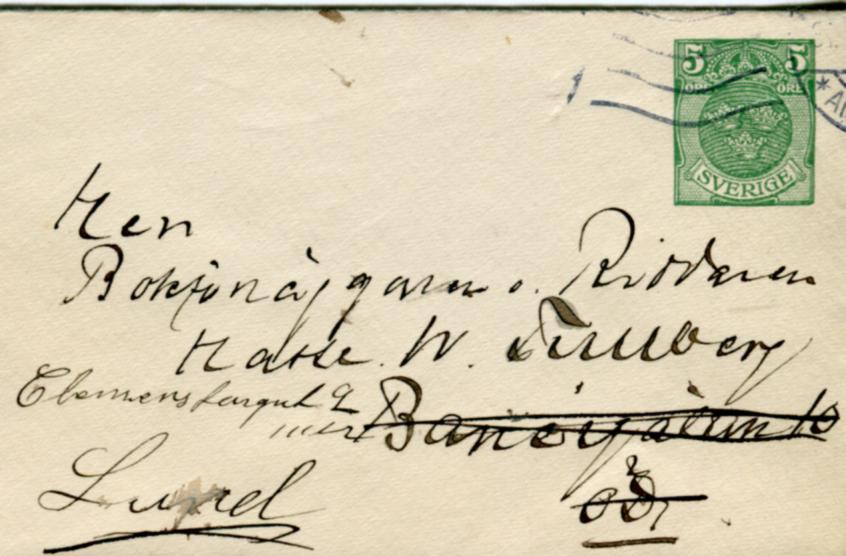 5 5
ÖRE ÖRE
SVERIGE
Herr
Bokförläggaren o. Riddaren
Hasse W. Tullberg
Clemenstorget 9
Banérgatan 10
Lund